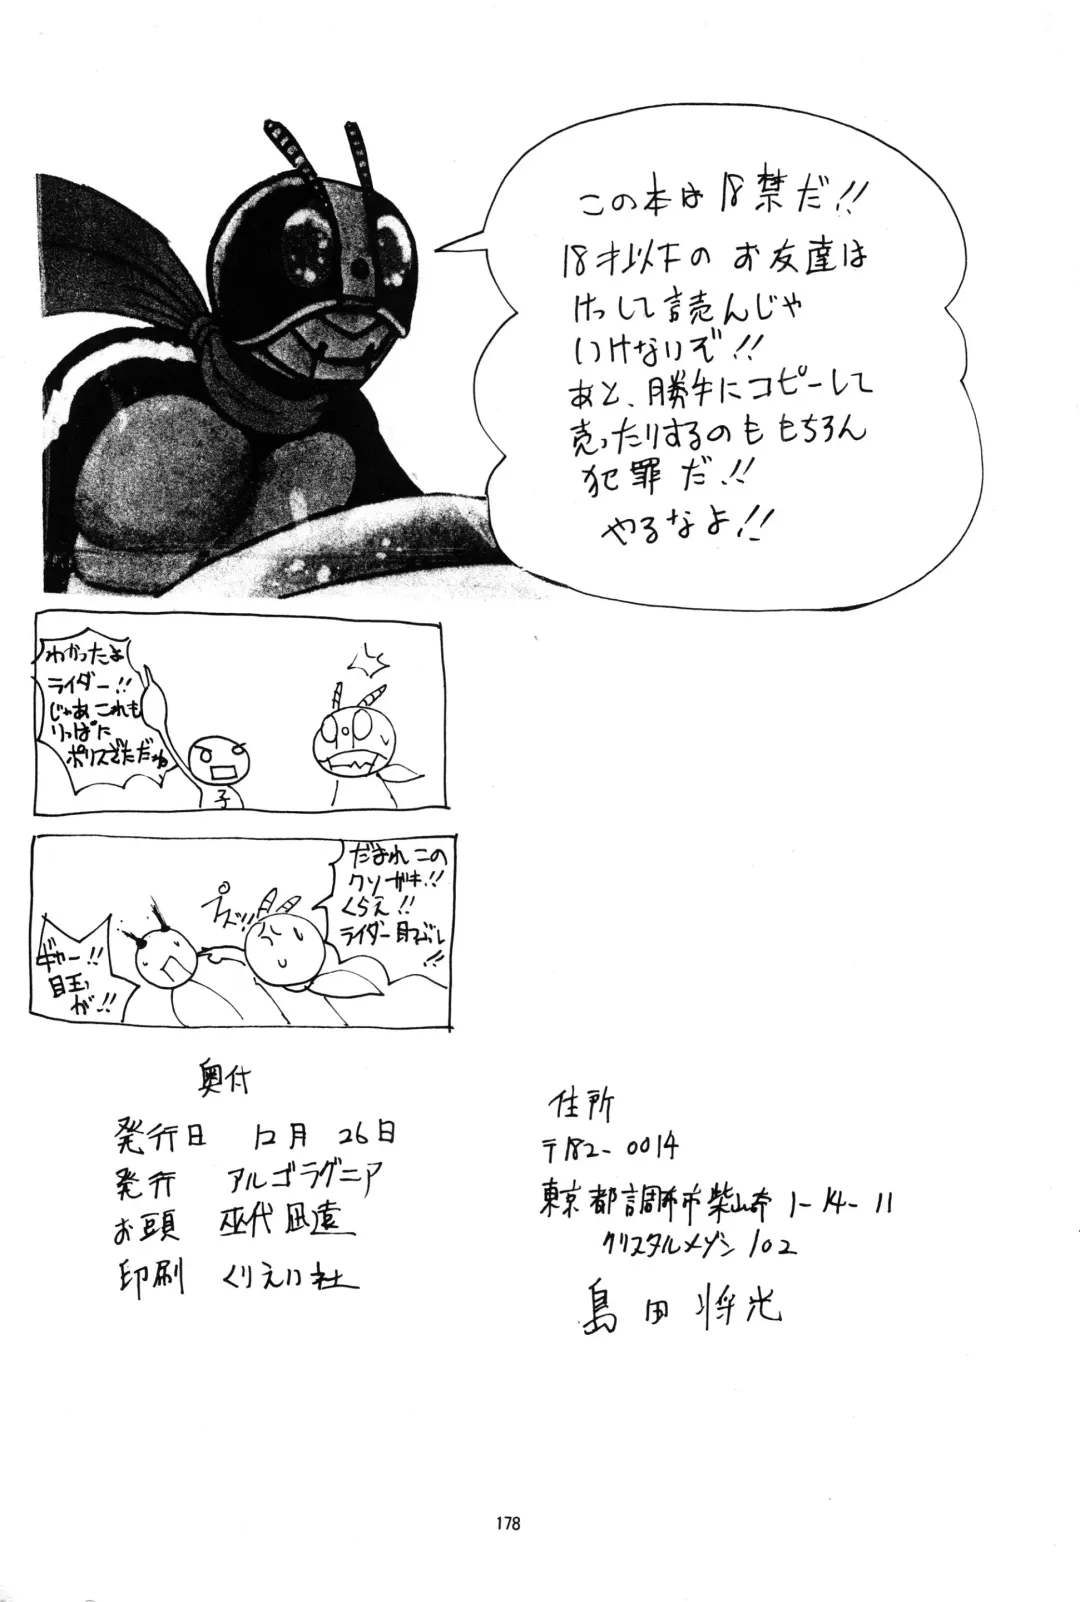 この本は18禁だ!!
18才以下のお友達は
けっして読んじゃ
いけないぞ!!
あと、勝手にコピーして
売ったりするのももちろん
犯罪だ!!
やるなよ!!
わかったよ
ライダー!!
じゃあこれも
りっぱに
ポリスざただね
子
だまれこの
クソガキ!!
くらえ!!
ライダー目つぶし
!!
ギャー!!
目玉
が!!
奥付
発行日 12月 26日
発行 アルゴラグニア
お頭 巫代凪遠
印刷 くりえい社
住所
〒182-0014
東京都調布市柴崎1-14-11
クリスタルメゾン102
島田将光
178